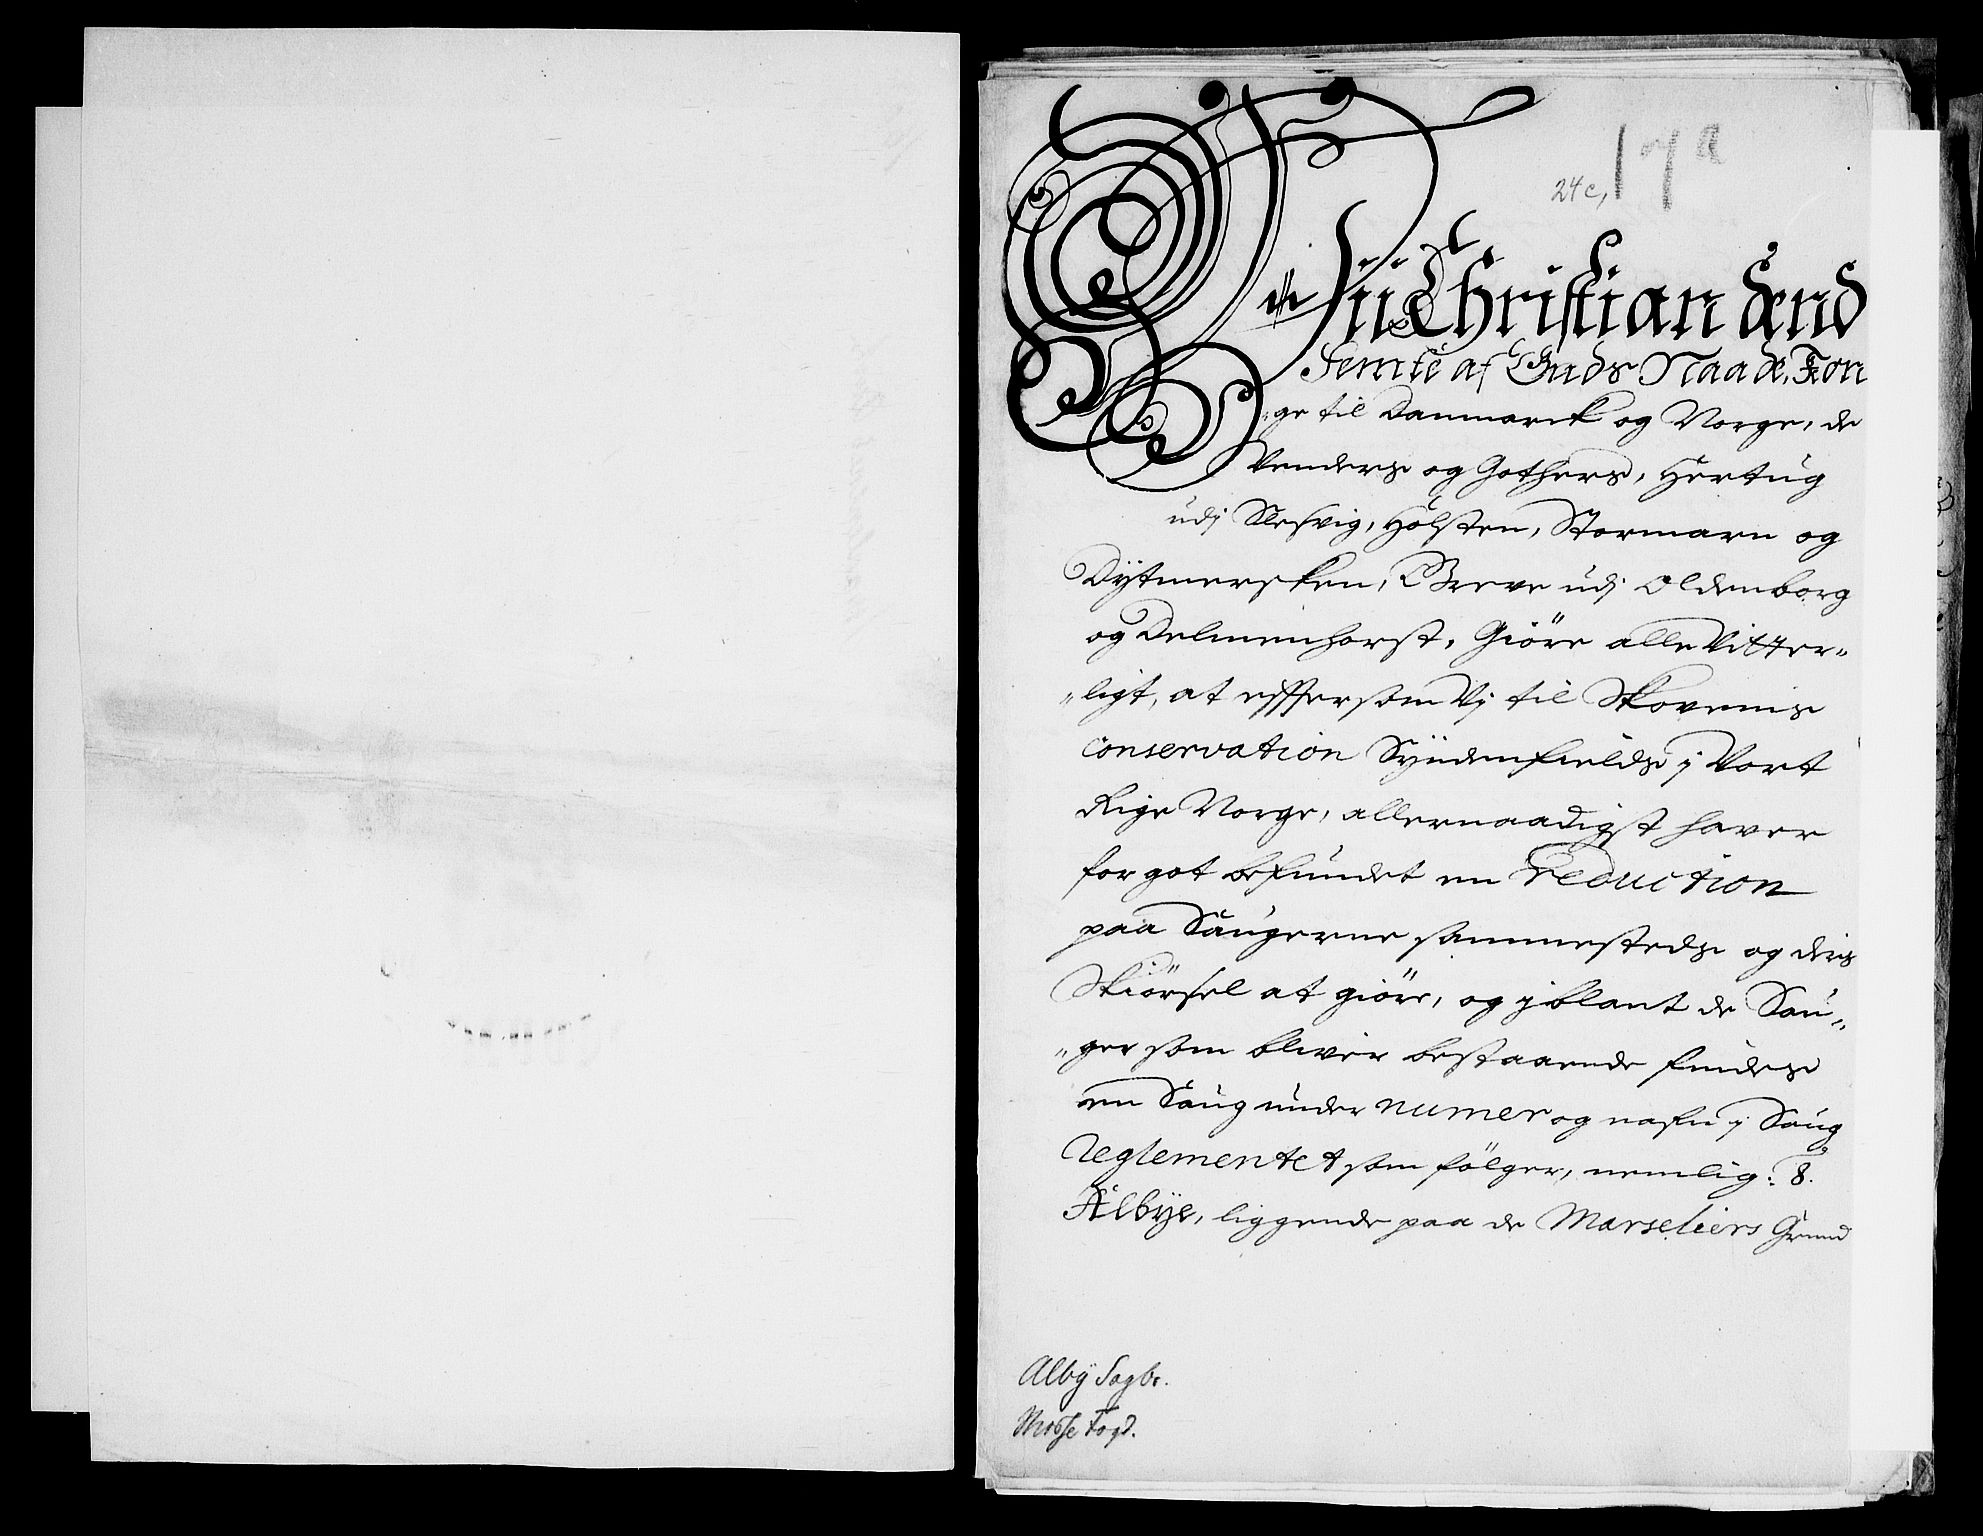 17 a
24 c,
Vii Christian dend
Femte af Guds Naade, Kon
"ge til Danmarck og Norge, de
Venders og Gothers, Hertug
udj Slesvig, Holsten, Stormarn og
Dÿtmersken, Greve udj Oldenborg
og Delmenhorst, Giöre alle Vitter"
"ligt, at effter som Vj til Skovenis
conservation Syndenfields j Vort
Rige Norge, allernaadigst haver
for got befundet en reduction
paa Saugerne sammesteds og deris
Skiörsel at giöre, og jblant de Sau"
"ger som bliver bestaaende findes
en Saug under numer og nafn j Saug
reglementet som fölger, nemlig: 8.
Albÿe, liggende paa de Marseliers Grund
Albÿ Sagbr.
Mosse Fogd.